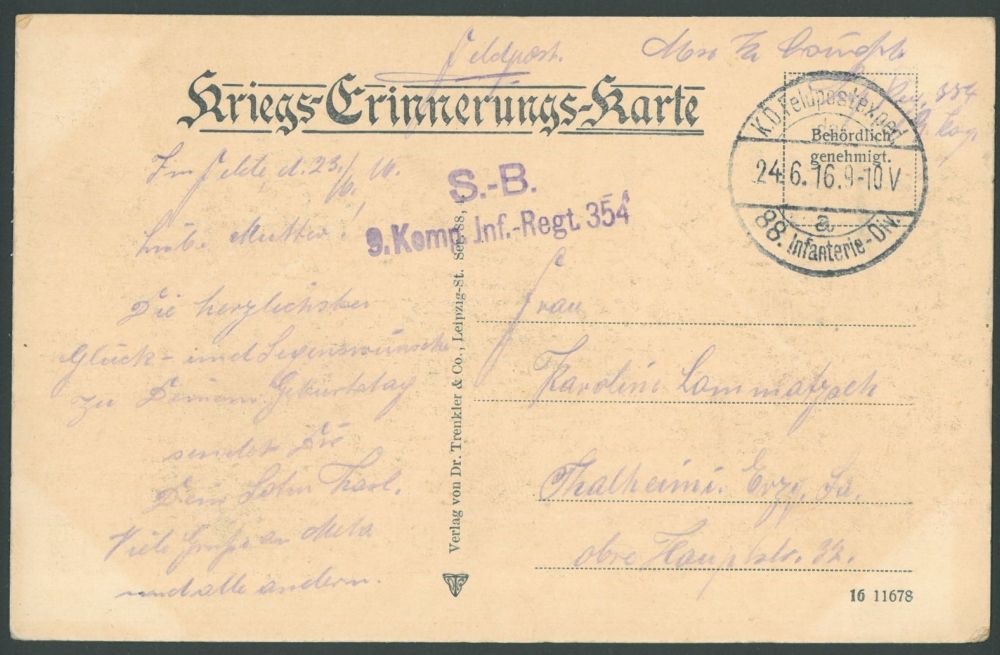 Feldpost.
Kriegs-Erinnerungs-Karte
K.D. Feldpostexped.
Behördlich
genehmigt.
24.6.16.9-10V
a
88. Infanterie-Div.
S.-B.
9. Komp. Inf.-Regt. 354
Im Felde d. 23./6. 16.
Liebe Mutter!
Die herzlichsten
Glück- und Segenswünsche
zu Deinem Geburtstag
sendet Dir
Dein Sohn Karl.
Viele Grüße an Meta
und alle andern.
Verlag von Dr. Trenkler & Co., Leipzig-St. Ser. 88,
Frau
Karoline Lommatzsch
Thalheim i. Erzg. Sa.
obre Hauptstr. 32.
16 11678